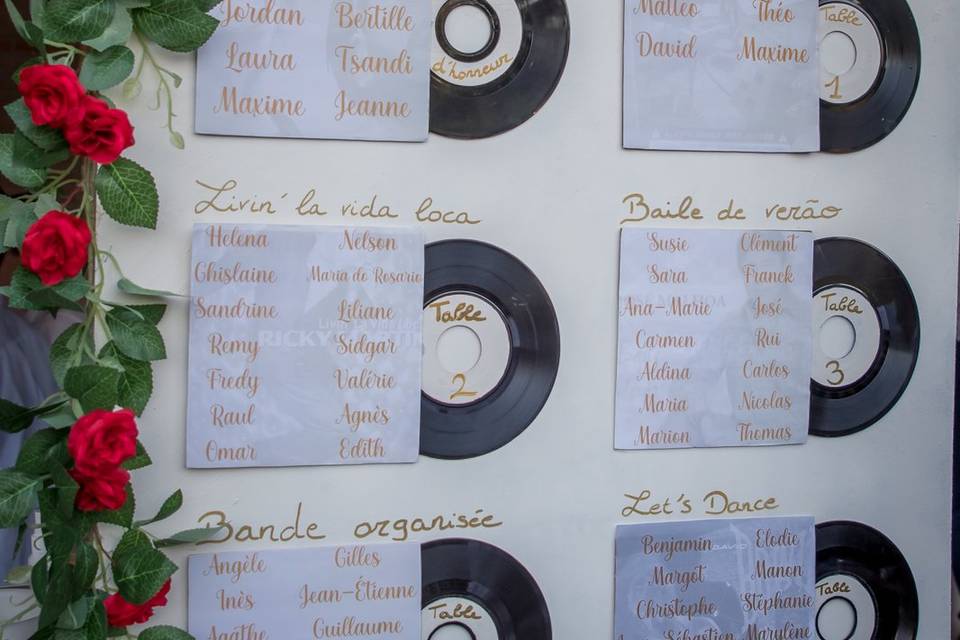 Jordan Bertille
Laura Tsandi
Maxime Jeanne
d'honneur
Matteo Théo
David Maxime
Table
1
Livin' la vida loca
Helena Nelson
Ghislaine Maria de Rosario
Sandrine Liliane
Remy Sidgar
Fredy Valérie
Raul Agnès
Omar Edith
RICKY
Table
2
Baile de verão
Susie Clément
Sara Franck
Ana-Marie José
Carmen Rui
Aldina Carlos
Maria Nicolas
Marion Thomas
Table
3
Bande organisée
Angèle Gilles
Inès Jean-Étienne
Agathe Guillaume
Table
Let's Dance
Benjamin Elodie
Margot Manon
Christophe Stéphanie
Sébastien Marylène
DAVID
Table